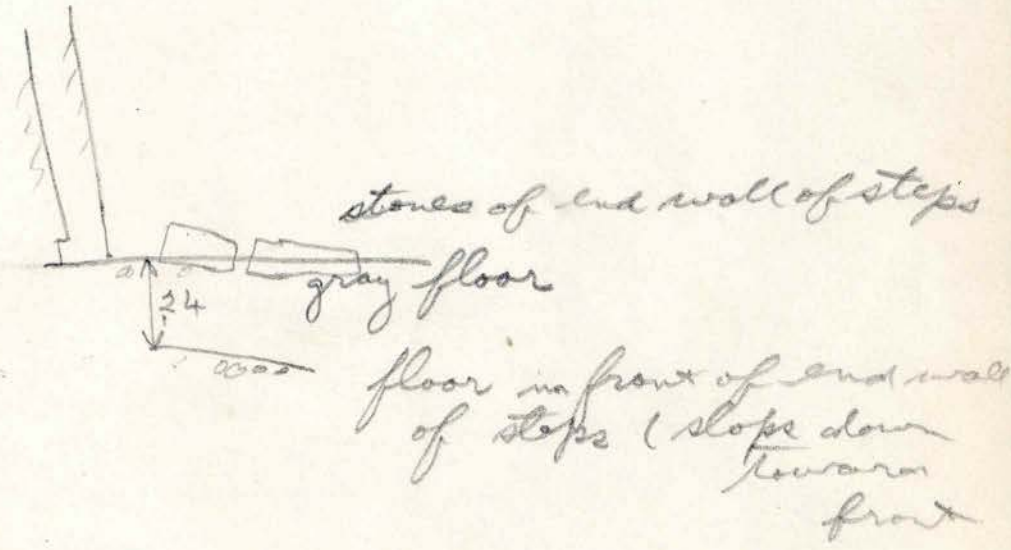 stones of end wall of steps
gray floor
24
floor in front of end wall
of steps ( slops down
toward
front